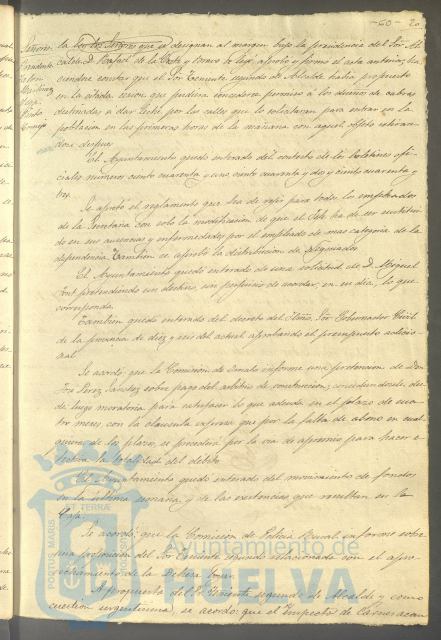 - 60 -
Señores la los Señores que se designan al margen bajo la presidencia del Sor. Al-
calde D. Rafael de la Corte y Bravo se leyo, aprobo y firmo el acta anterior, ha-
ciendose constar que el Sor Teniente segundo de Alcalde habia propuesto
en la citada sesion que pudiera concederse permiso á los dueños de cabras
destinadas a dar leche por las calles que lo solicitaran para entrar en la
poblacion en las primeras horas de la mañana con aquel objeto retiran-
dose despues.
El Ayuntamiento quedó enterado del contesto de los boletines ofi-
ciales numeros ciento cuarenta y uno ciento cuarenta y dos y ciento cuarenta y
tres.
Se aprobó el reglamento que ha de regir para todos los empleados
de la Secretaria con solo la modificacion de que el Gefe ha de ser sustitui-
do en sus ausencias y enfermedades por el empleado de mas categoria de la
dependencia. Tambien se aprobó la distribucion de
El Ayuntamiento quedó enterado de una solicitud de D. Miguel
pretendiendo un destino, sin perjuicio de acordar, en su dia, lo que
corresponda.
Tambien quedó enterado del decreto del Iltmo. Sor Gobernador Civil
de la provincia de diez y seis del actual aprobando el presupuesto adicio-
nal
Se acordó, que la Comision de Ornato informe una pretencion de Don
José Perez Sanchez sobre pago del arbitrio de construccion; concediendole des-
de luego moratoria para satisfacer lo que adeuda en el plazo de cua-
tro meses, con la clausula espresa que por la falta de abono en cual-
quiera de los plazos, se procederá por la via de apremio para hacer e-
fectiva la totalidad del debito.
El Ayuntamiento quedó enterado del movimiento de fondos
en la ultima semana, y de las existencias que resultan en la
Caja.
Se acordó, que la Comision de Policia Rural informe sobre
una pretencion del Sor Teniente relacionada con el apro-
vechamiento de la Dehesa
A propuesta del Sor Teniente segundo de Alcalde y como
cuestion urgentisima, se acordó: que el Inspector de Carnes
PORTUS MARIS
ET TERRAE
Ayuntamiento de
HUELVA